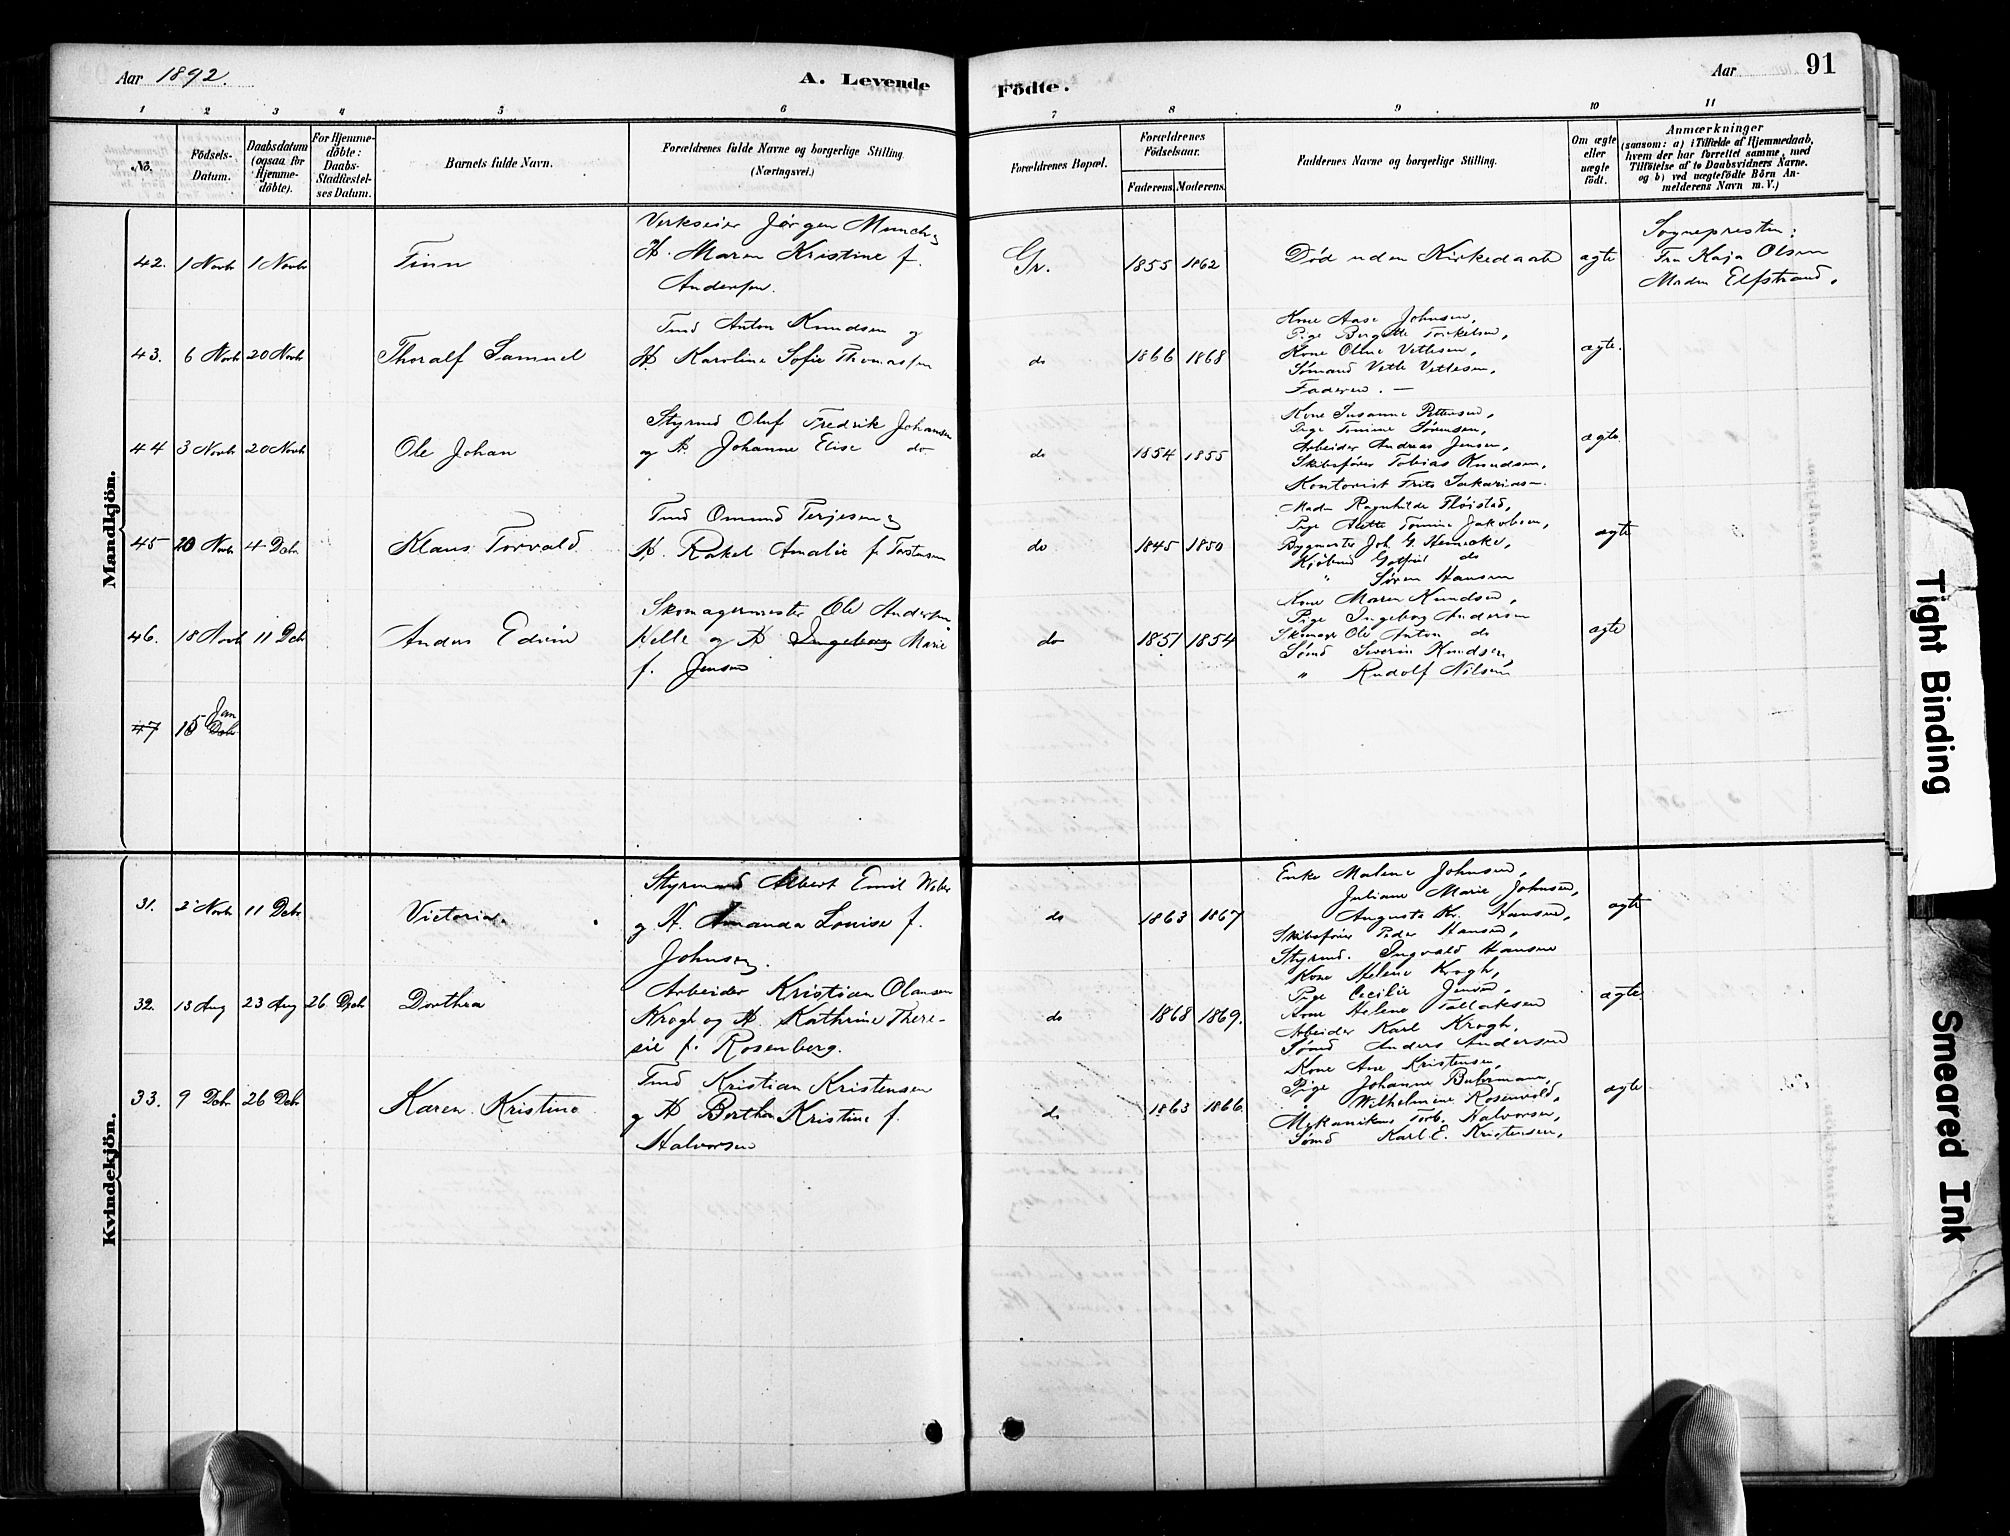 Aar 1892.
A. Levende
Födte.
Aar
91
1 2 3 4 5 6 7 8 9 10 11
No.
Födsels-
Datum.
Daabsdatum
(ogsaa for
Hjemme-
döbte).
For Hjemme-
döbte:
Daabs-
Stadfæstel-
ses Datum.
Barnets fulde Navn.
Forældrenes fulde Navne og borgerlige Stilling
(Næringsvei.)
Forældrenes Bopæl.
Forældrenes
Födselsaar.
Faderens. Moderens.
Faddernes Navne og borgerlige Stilling.
Om ægte
eller
uægte
födt.
Anmærkninger
(saasom: a) i Tilfælde af Hjemmedaab,
hvem der har forrettet samme, med
Tilföielse af to Daabsvidners Navne.
og b) ved uægtefödte Börn An-
melderens Navn m. V.)
Mandkjön.
42. 1 Novb 1 Novb
Finn
Verkseier Jørgen Munch og
H. Maren Kristine f.
Andersen.
Gr.
1855 1862
Død uden Kirkedaab
ægte
Sognepresten:
Fru Kaja Olsen
Madm Elfstrand.
43. 6 Novb 20 Novb
Thoralf Samuel
Tmd Anton Knudsen og
H. Karoline Sofie Thomassen
do
1866 1868
Kone Aase Johnsen,
Pige Bergitte Torkelsen,
Kone Oline Vettesen,
Sømand Vetle Vettesen,
Faderen. —
ægte.
44 3 Novb 20 Novb
Ole Johan
Styrmd Oluf Fredrik Johansen
og H. Johanne Elise do
do
1854 1855
Kone Susanne Pettersen,
Pige Tomine Sørensen,
Arbeider Andreas Jensen,
Skibsfører Tobias Knudsen,
Kontorist Frits Sakariasen.
ægte.
45 20 Novb 4 Debr
Klaus Torvald
Tmd Omund Terjesen og
H. Rakel Amalie f. Torstensen
do
1845 1850
Madm Ragnhilde Fløistad,
Pige Alette Tomine Jakobsen,
Bygmester Joh. G. Heinecke,
Kjøbmd Gotfried do
" Søren Hansen
ægte
46. 18 Novb 11 Debr
Anders Edvin
Skomagermester Ole Andersen
Kelle og H. Ingeborg Marie
f. Jensen
do
1851 1854
Kone Maren Knudsen,
Pige Ingeborg Andersen
Skomager Ole Anton do
Sømd Severin Knudsen,
" Rudolf Nilsen
ægte
47 15 Debr
Jan
Kvindekjön.
31. 2 Novb 11 Debr
Victoria
Styrmand Albert Emil Weber
og H. Amanda Louise f.
Johnsen.
do
1863 1867
Enke Malene Johnsen,
Juliane Marie Johnsen,
Augusta Kr. Hansen,
Skibsfører Peder Hansen,
Styrmd. Ingvald Hansen
ægte
32. 13 Aug 23 Aug 26 Debr
Dorthea
Arbeider Kristian Olausen
Krogh og H. Kathrine There-
sie f. Rosenberg.
do
1868 1869.
Kone Helene Krogh,
Pige Cecilie Jensen,
Kone Helene Tallaksen
Arbeider Karl Krogh,
Sømd Anders Andersen
ægte
33. 9 Debr 26 Debr
Karen Kristine
Tmd Kristian Kristensen
og H Berthe Kristine f.
Halvorsen
do
1863 1866.
Kone Ane Kristensen,
Pige Johanne
" Wilhelmine Rosenvold,
Mekanikus Torb. Halvorsen,
Sømd Karl E. Kristensen,
ægte
Tight Binding
Smeared Ink